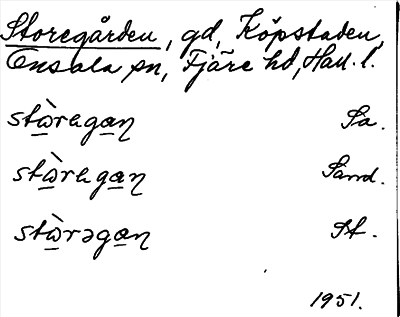 Storegården, gd, Köpstaden,
Onsala sn, Fjäre hd, Hall. l.
stὼ̲raga̲ƞ Sa.
stὼ̲raga̲ƞ Sand.
stὼ̲rəga̲ƞ St.
1951.